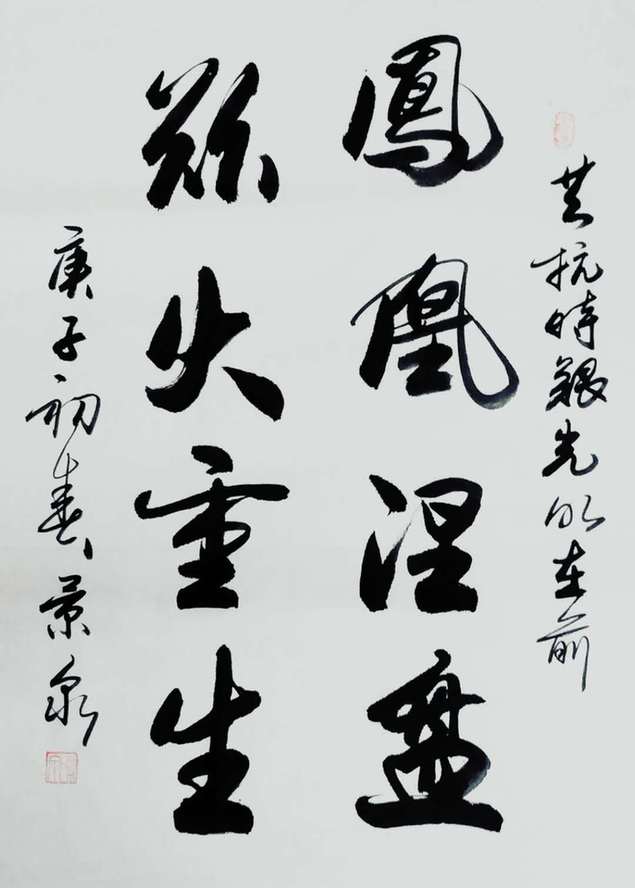 共抗時艱光明在前
鳳凰涅盤
浴火重生
庚子初春景泉